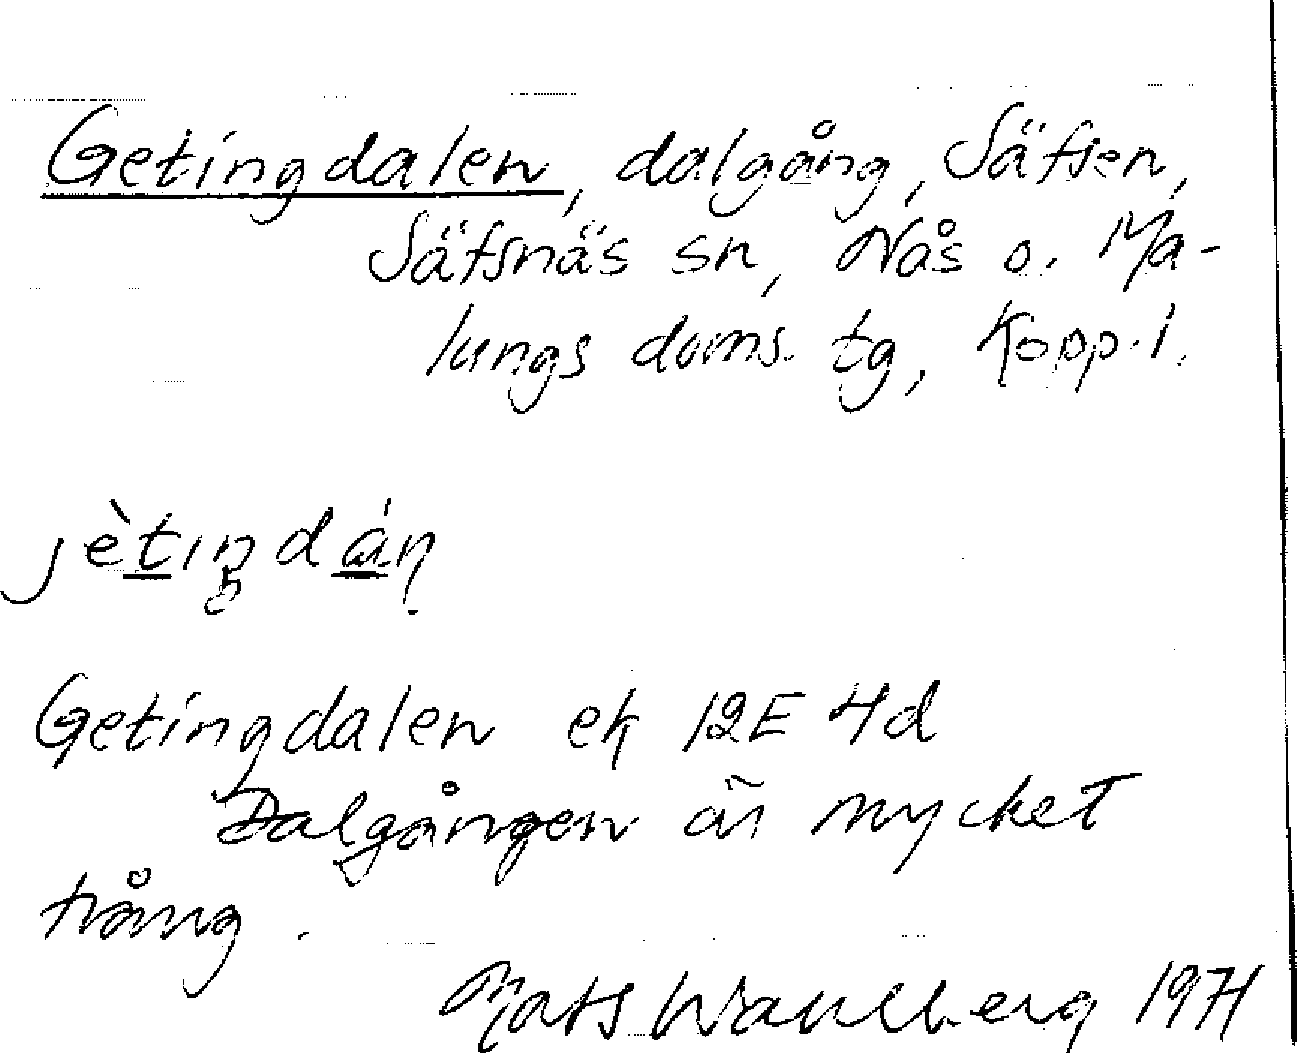 Getingdalen, dalgång, Säfsen,
Säfsnäs sn, Nås o. Ma-
lungs doms. tg, Kopp. l.
jètıŋdáṇ
Getingdalen ek 12E 4d
Dalgången är mycket
trång.
Mats Wahlberg 1971